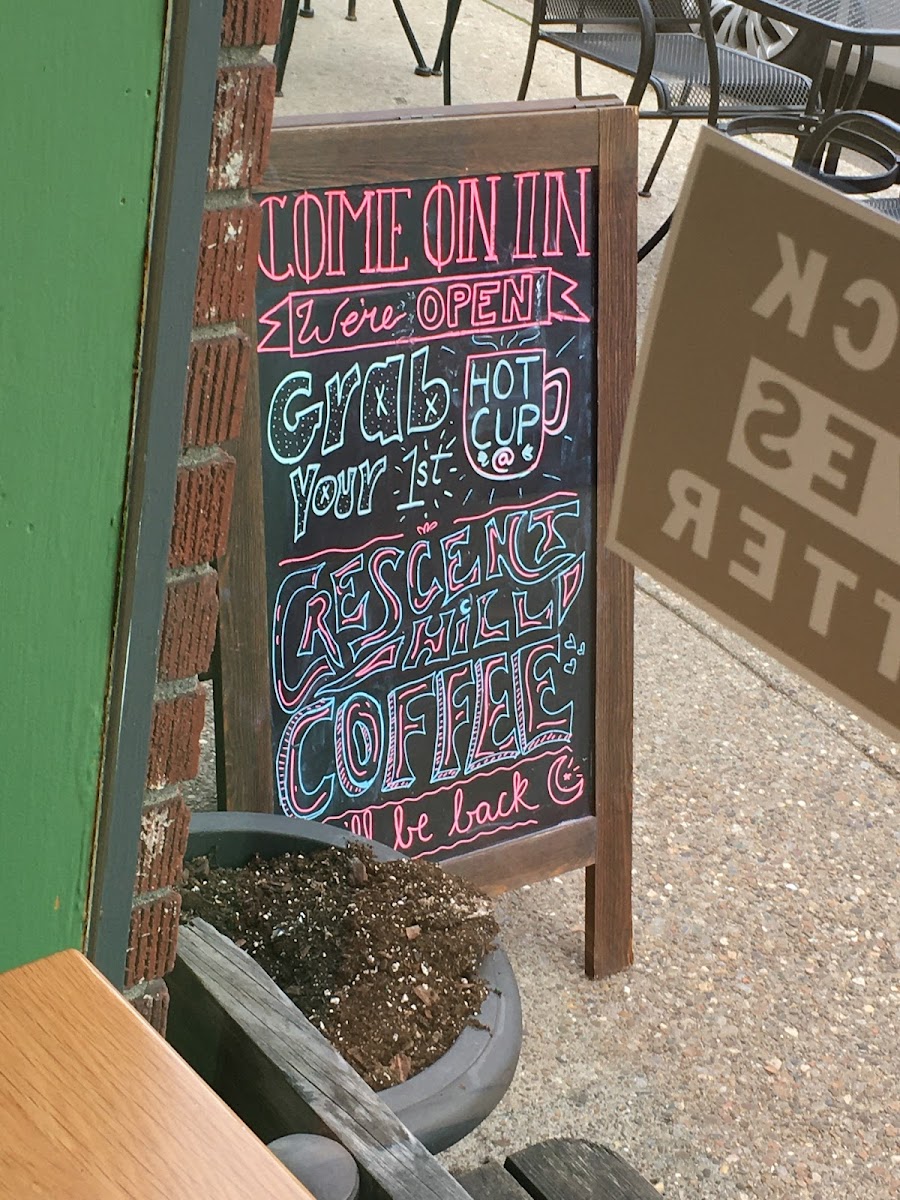 COME ON IN
We're OPEN
Grab HOT
CUP
Your 1st @
CRESCENT
HILL
COFFEE
'll be back
CK
ES
TTER